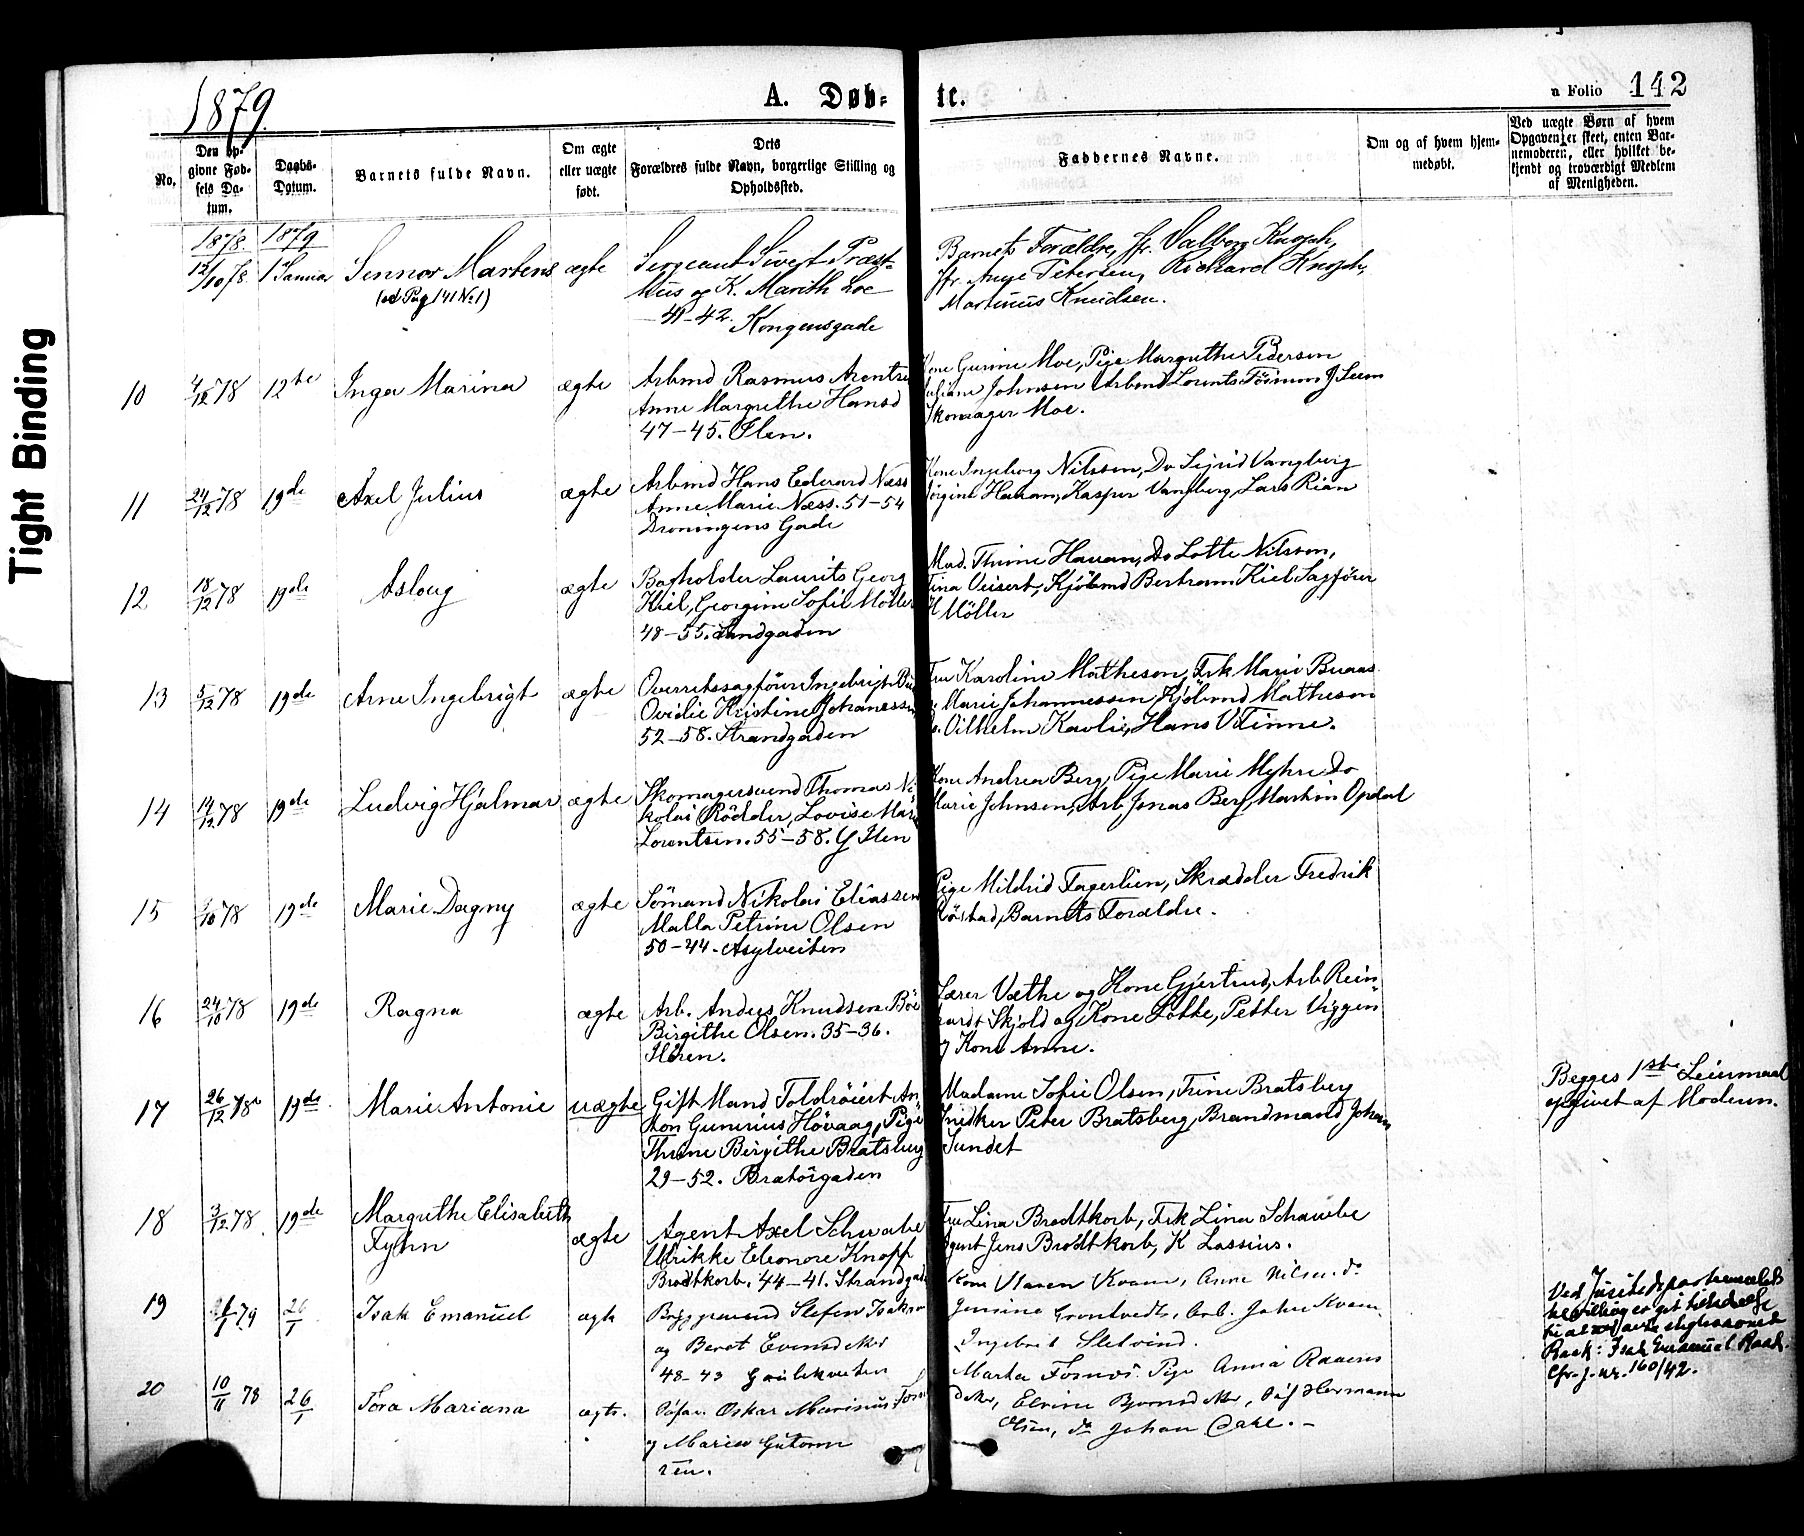 Tight Binding
1879.
A. Døb-
te.
n Folio 142
No.
Den op-
givne Fød-
sels Da-
tum.
Daabs-
Datum.
Barnets fulde Navn.
Om ægte
eller uægte
født.
Dets
Forældres fulde Navn, borgerlige Stilling og
Opholdssted.
Faddernes Navne.
Om og af hvem hjem-
medøbt.
Ved uægte Børn af hvem
Opgaven er skeet, enten Bar-
nemoderen, eller hvilket be-
kjendt og troværdigt Medlem
af Menigheden.
1878. 1879
12/10 78. 1 Januar Sennor Martens ægte
(cd Pag 141 No 1)
Sergeant Sivert Præst-
hus og K. Marith Loe
41-42. Kongensgade
Barnets Forældre, Jfr. Valborg Knoph,
Jfr. Auge Petersen, Richard Knoph,
Martinus Knudsen.
10 4/12 78 12te Inga Marina ægte
Arbmd Rasmus Arentse
Anne Margrethe Hansd
47-45. Ilen.
Kone Gurine Moe, Pige Margrethe Pedersen
Juliane Johnsen Arbmd Lorents
Skomager Moe.
11 24/12 78 19de Axel Julius ægte
Arbmd Hans Edevard Næss
Anne Marie Næss. 51-54
Droningens Gade
Kone Ingeborg Nilssen, Do Sigrid Vangberg
Jørgine Haran, Kasper Vangberg, Lars Rian
12 18/12 78 19de Aslaug ægte
Bogholder Laurits Georg
Kiel, Georgine Sofie Möller
48-55. Sandgaden
Mad. Thrine Havan, Do Lotte Nilssen,
Tina Veisert, Kjöbmd Bertram Kiel Sagfører
H Möller
13 5/12 78 19de Arne Ingebrigt ægte
Overretssagförer Ingebrigt Bu
Ovidie Kristine Johanessen
52-58. Strandgaden
Fru Karoline Matheson, Frk Marie Buaas
Marie Johannessen, Kjöbmd Matheson
Vilhelm Kavlie, Hans V Finne.
14 14/12 78 19de Ludvig Hjalmar ægte
Skomagersvend Thomas Ni-
kolai Rödder, Lovise Mar
Lorentsen. 55-58. Y Ilen
Kone Andrea Berg, Pige Marie Myhre Do
Marie Johnsen, Arb, Jonas Berg, Martin Opdal
15 1/10 78 19de Marie Dagny ægte
Sömand Nikolai Eliassen
Malla Petrine Olsen
50-44. Asylveiten
Pige Mildrid Fagerlien, Skrædder Fredrik
Röstad, Barnets Forældre.
16 24/10 78 19de Ragna ægte
Arb. Anders Knudsen Böe
Birgithe Olsen. 35-36.
Ihlen.
Lærer Væthe og Kone Gjertrud, Arb Rein-
hardt Skjold og Kone Lotte, Petter Viggen
og Kone Anne.
17 26/12 78 19de. Marie Antonie uægte
Gift Mand Toldröiert An-
ton Gunerius Hövaag, Pige
Thrine Birgithe Bratsberg
29-52. Bratörgaden
Madame Sofie Olsen, Trine Bratsberg
Snedker Peter Bratsberg, Brandmand Johan
Sundet
Begges 1ste Leiermaal
opgivet af Moderen.
18 3/12 78. 19de Margrethe Elisabeth
Tyhn ægte
Agent Axel Schwabe
Ulrikke Eleonore Knoff
Brodtkorb. 44-41. Strandgade
Fru Lina Brodtkorb, Frk Lina Schwabe
Agent Jens Brodtkorb, K Lassius.
19 1/1 79 26/1 Isak Emanuel ægte
Bryggemand Stefen Isaksen
og Beret Evensdatter
48-43
Kone Maren Kvam, Anne Nilsen, do
Jensine Grontvedt, Arb. John Kvam,
Ingebret Sletvind.
Ved Justitsdepartementets
bevilling er git tilladelse
til at slegtsnavnet
Raak: Isak Emanuel Raak.
Cfr. j.nr. 160/42.
20 10/11 78 26/1 Tora Mariana ægte.
Oskar Marinus
og Maria Gutorm
sen.
Marta Fosnæs. Pige Anna
Elvine Bjornsdatter, Hermann
Olsen, do Johan Dahl.-